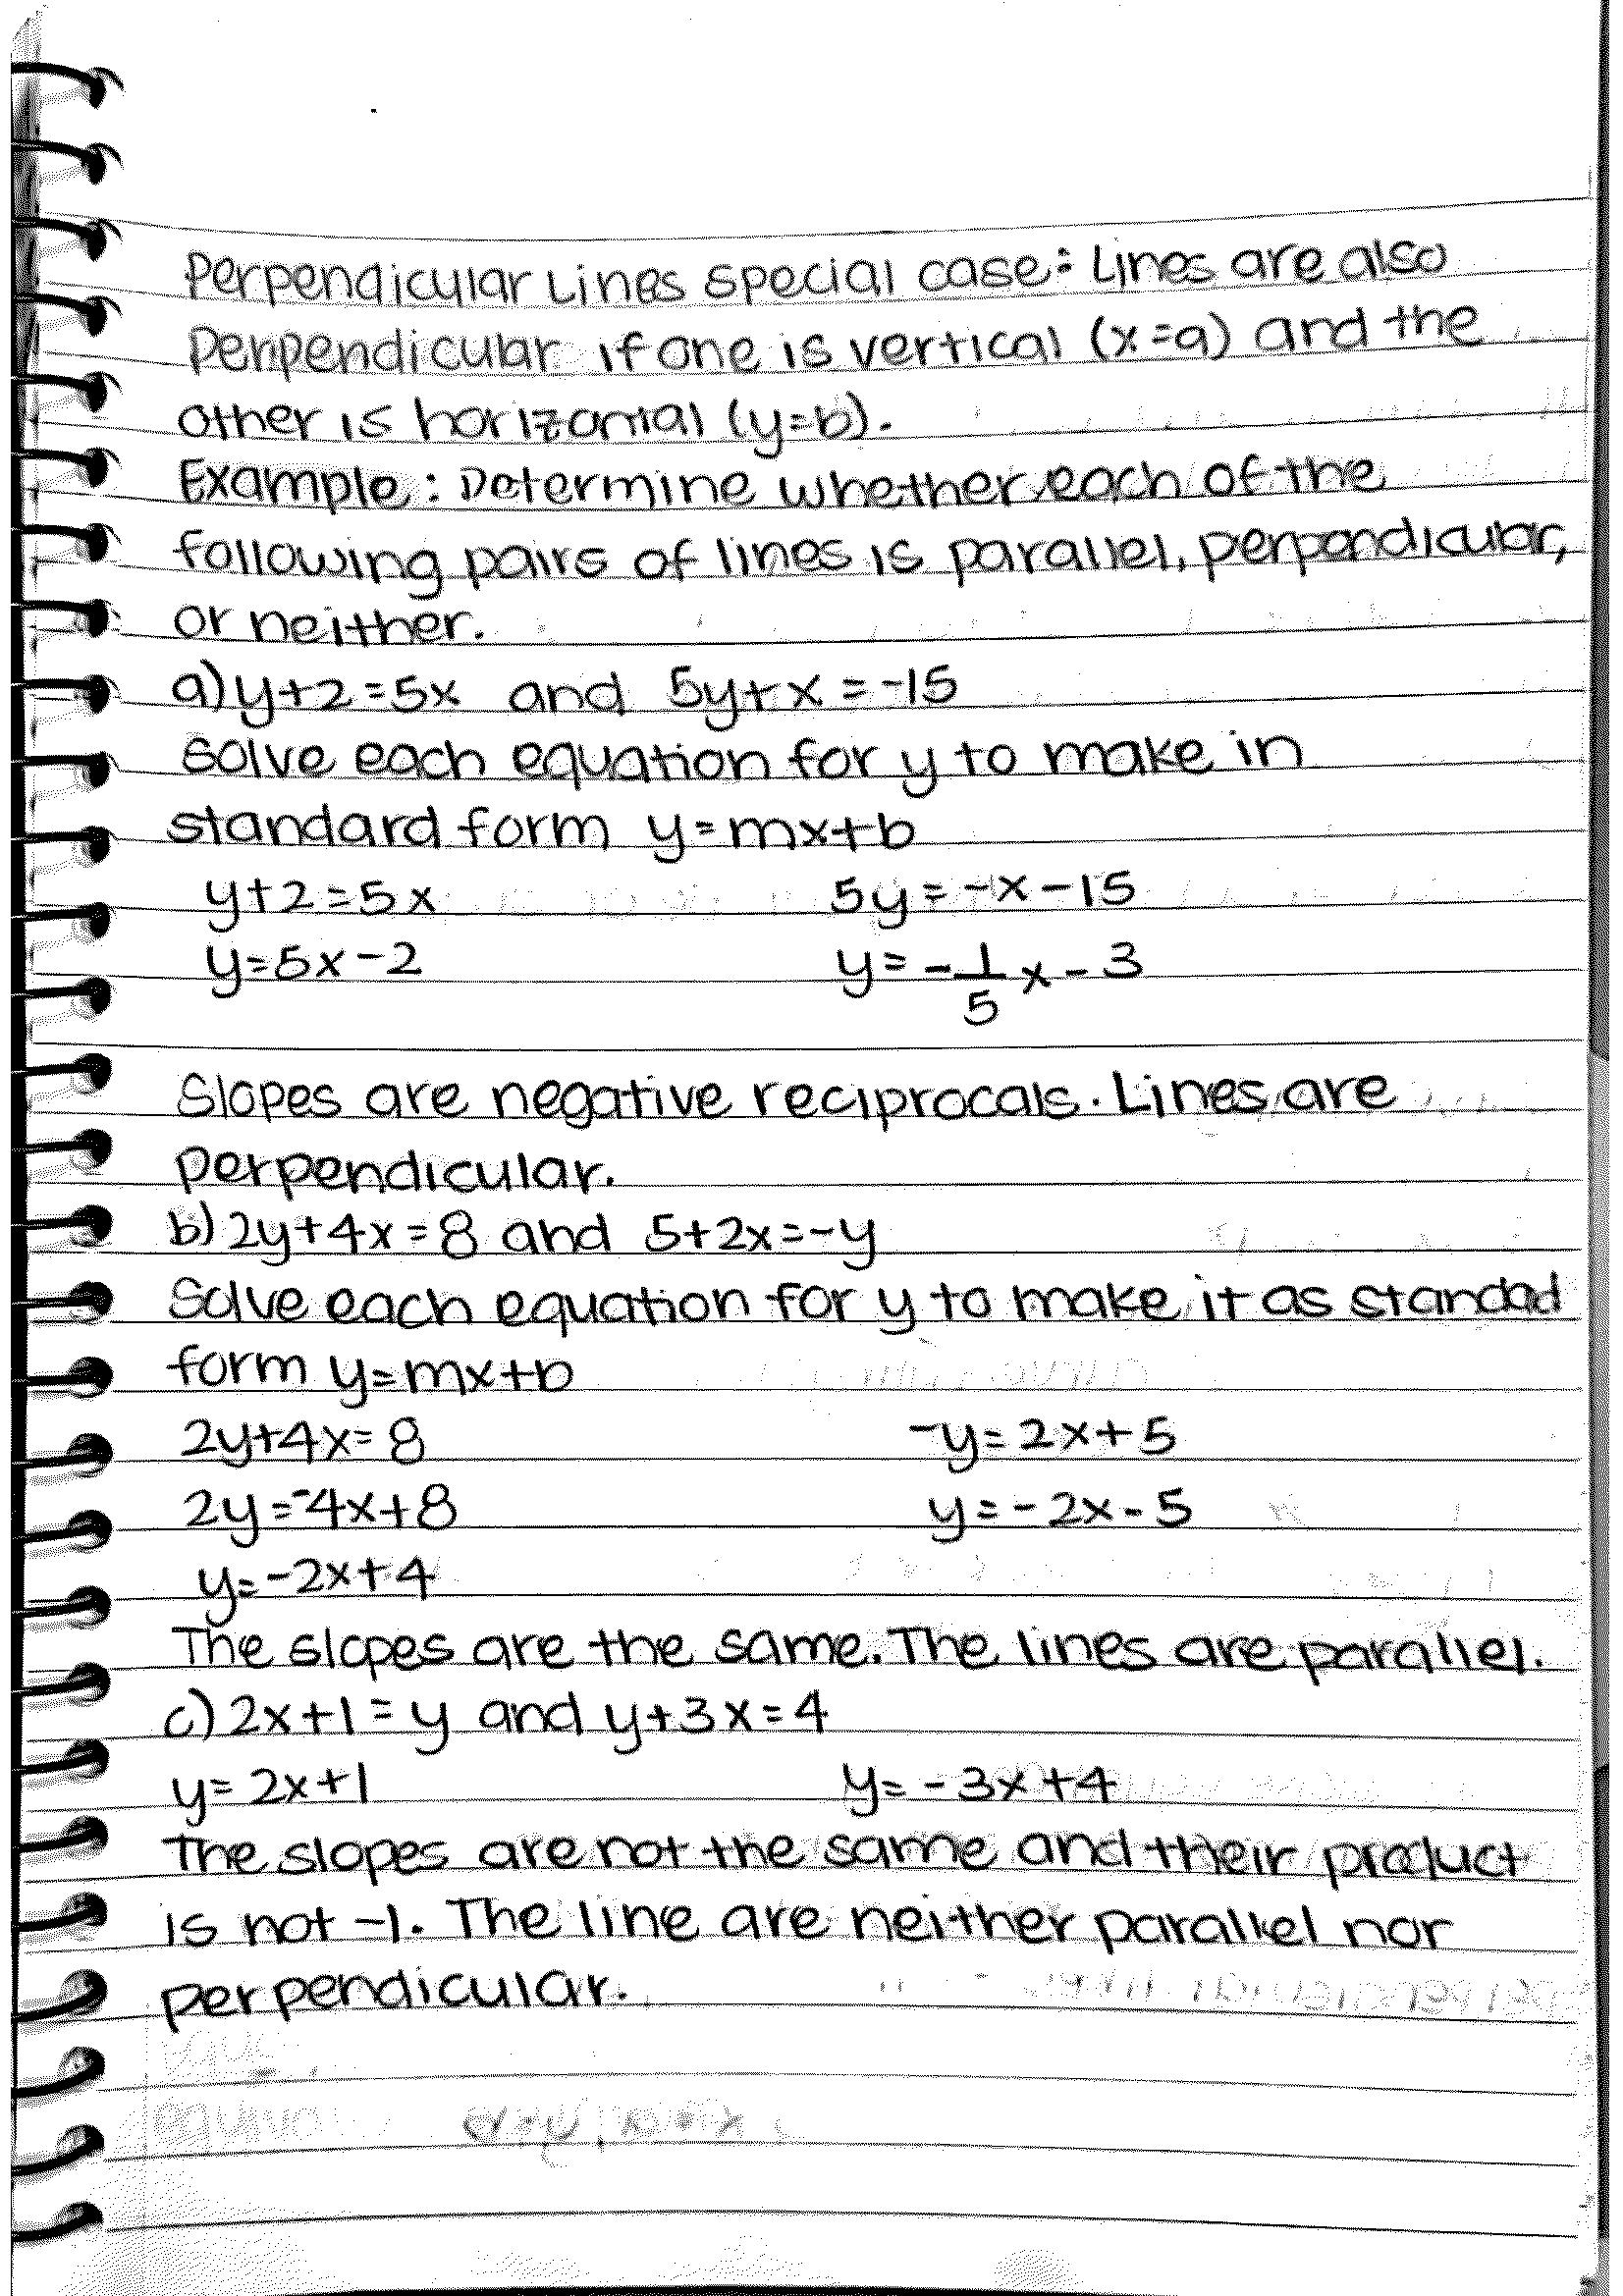 Perpendicular Lines special case: Lines are also
Perpendicular if one is vertical (x=a) and the
other is horizontal (y=b).
Example: Determine whether each of the
following pairs of lines is parallel, perpendicular,
or neither.
a) y+2=5x and 5y+x=-15
solve each equation for y to make in
standard form y=mx+b
y+2=5x 5y=-x-15
y=5x-2 y=-1/5 x-3
Slopes are negative reciprocals. Lines are
perpendicular.
b) 2y+4x=8 and 5+2x=-y
Solve each equation for y to make it as standad
form y=mx+b
2y+4x=8 -y=2x+5
2y=-4x+8 y=-2x-5
y=-2x+4
The slopes are the same. The lines are parallel.
c) 2x+1=y and y+3x=4
y=2x+1 y=-3x+4
The slopes are not the same and their product
is not -1. The line are neither parallel nor
perpendicular.